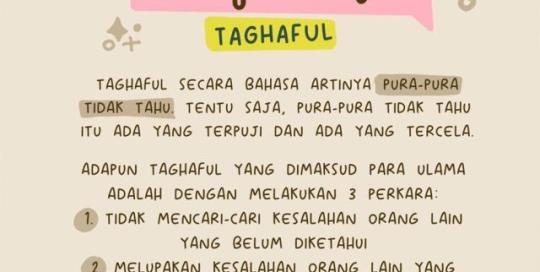 TAGHAFUL
TAGHAFUL SECARA BAHASA ARTINYA PURA-PURA
TIDAK TAHU. TENTU SAJA, PURA-PURA TIDAK TAHU
ITU ADA YANG TERPUJI DAN ADA YANG TERCELA.
ADAPUN TAGHAFUL YANG DIMAKSUD PARA ULAMA
ADALAH DENGAN MELAKUKAN 3 PERKARA:
1. TIDAK MENCARI-CARI KESALAHAN ORANG LAIN
YANG BELUM DIKETAHUI
2. MELUPAKAN KESALAHAN ORANG LAIN YANG